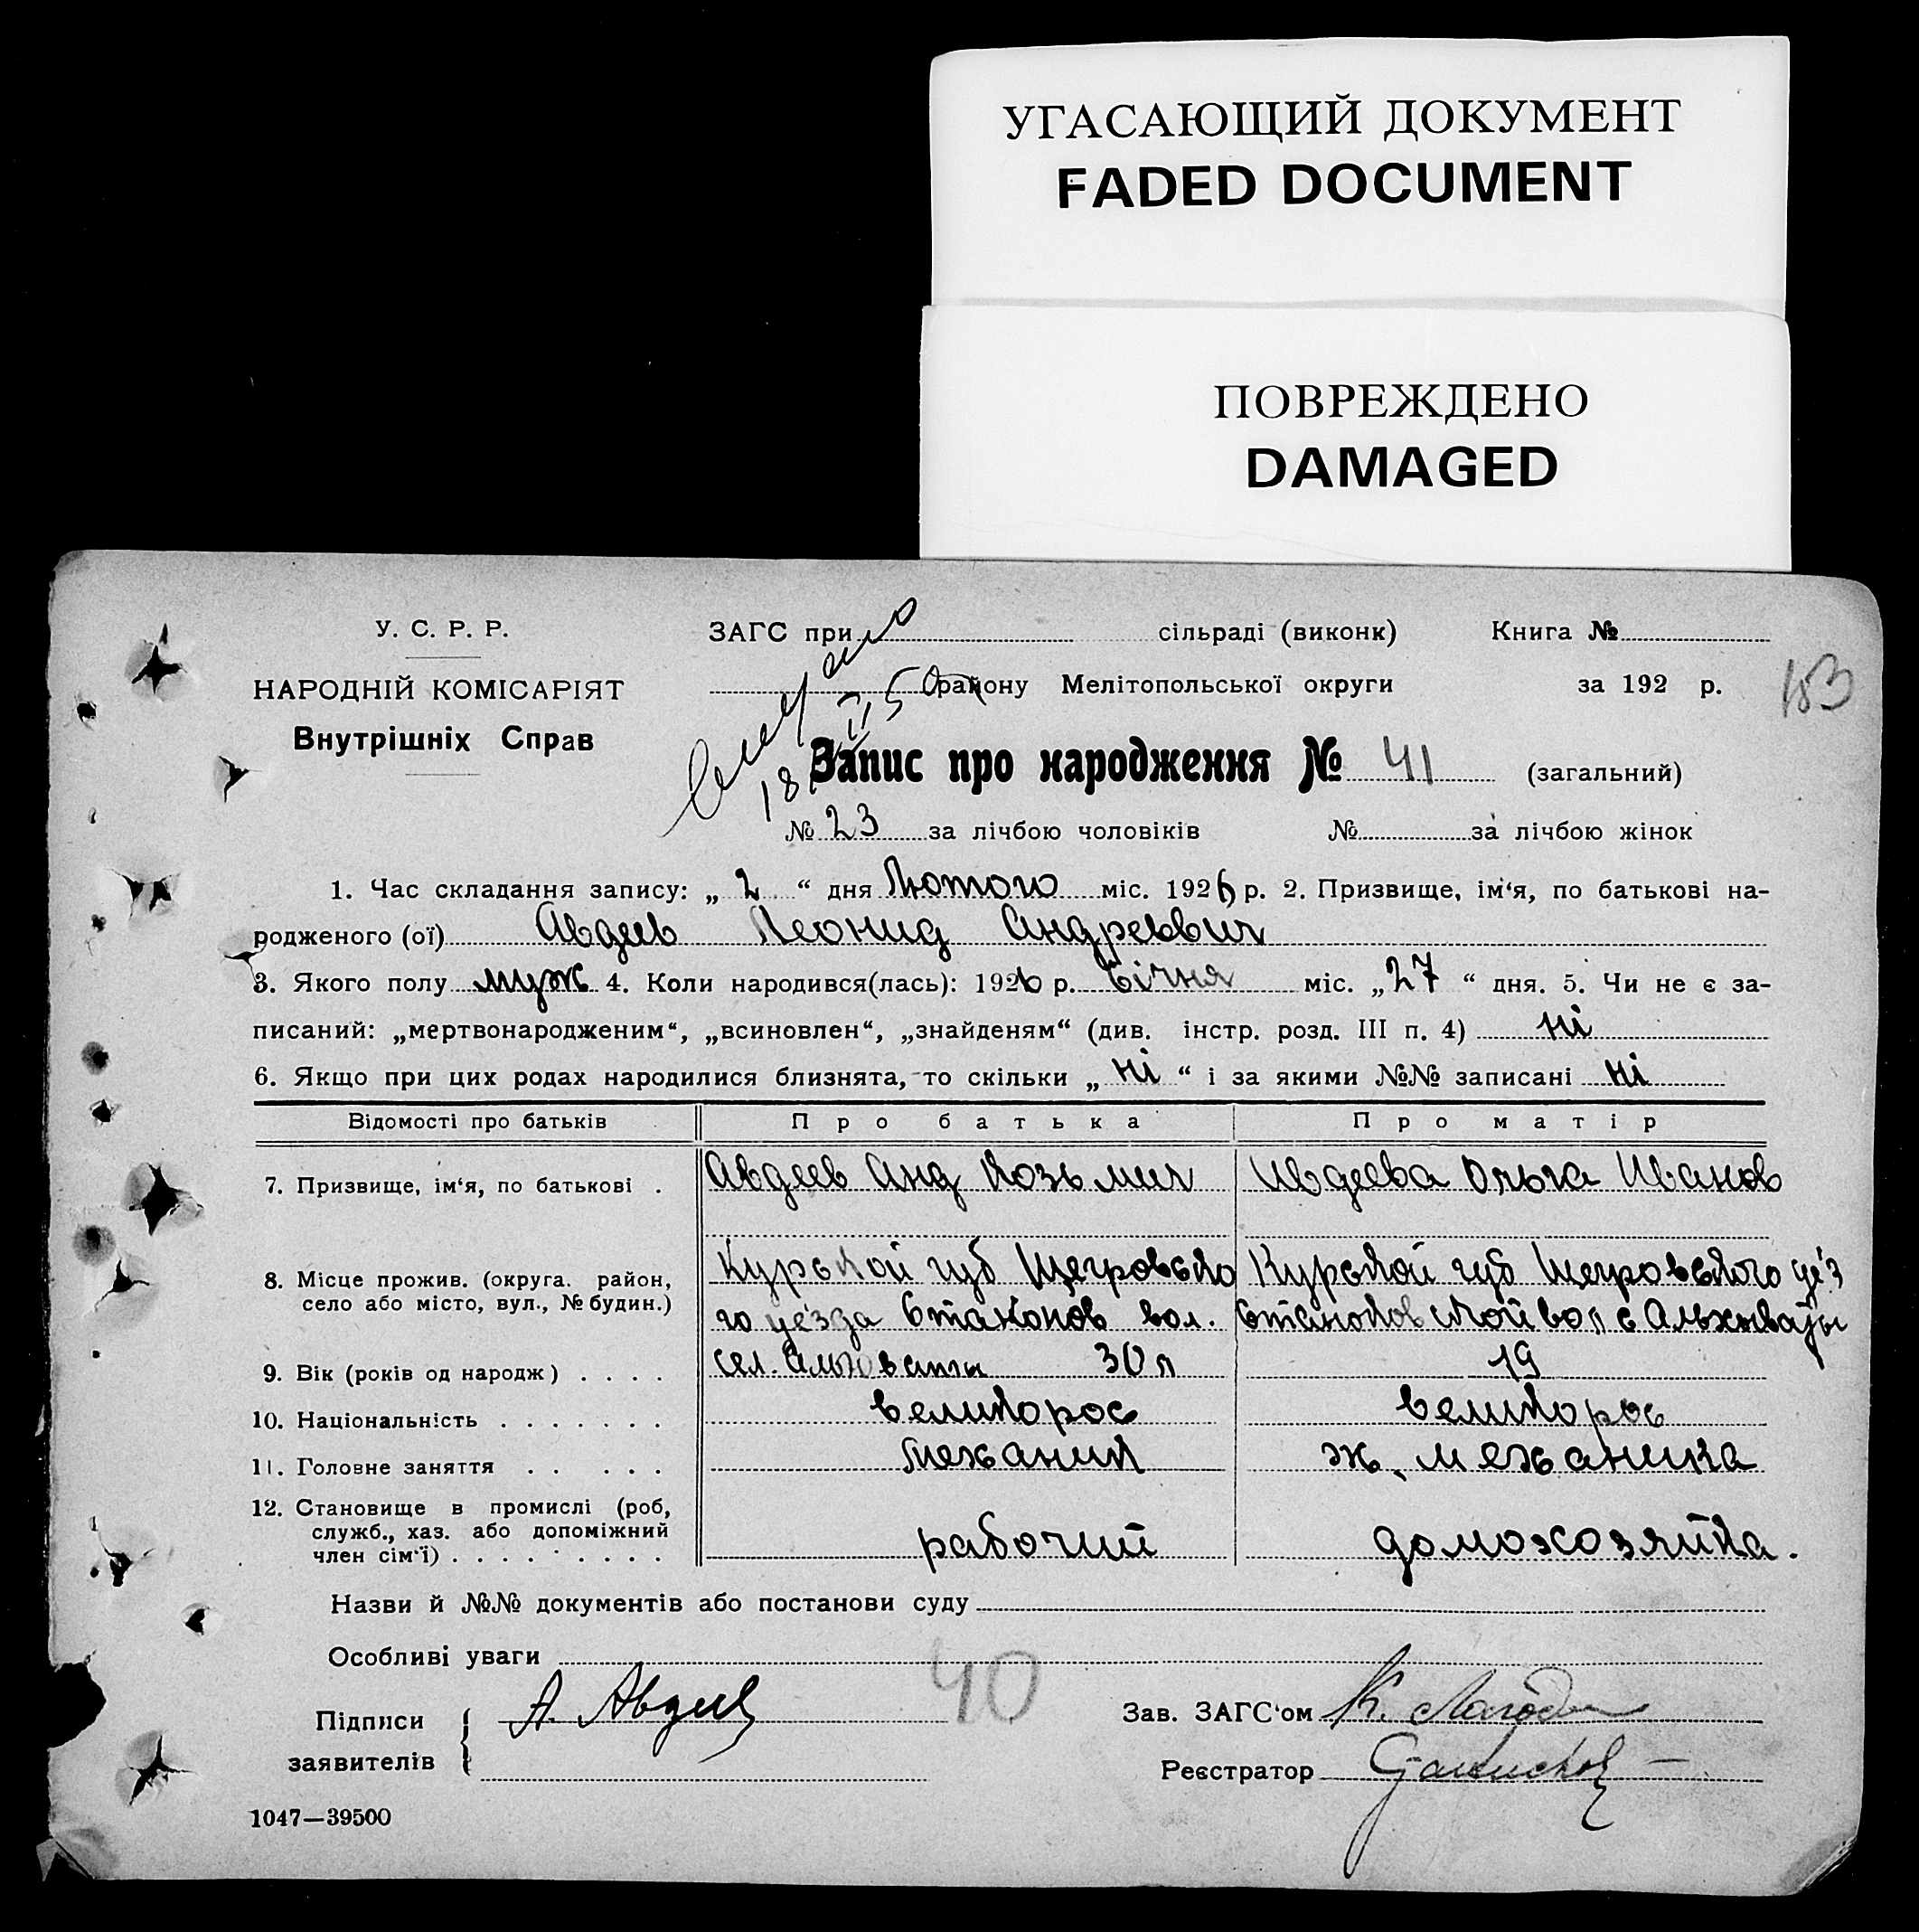 УГАСАЮЩИЙ ДОКУМЕНТ
FADED DOCUMENT
ПОВРЕЖДЕНО
DAMAGED
У. С. Р. Р.
НАРОДНІЙ КОМІСАРІЯТ
Внутрішніх Справ
ЗАГС при сільраді (виконк) Книга №
району Мелітопольської округи за 192 р.
183
Запис про народження № 41 (загальний)
№ 23 за лічбою чоловіків № за лічбою жінок
1. Час складання запису: „ 2 “ дня Лютого міс. 1926 р. 2. Призвище, ім‘я, по батькові на-
родженого (ої) Авдеев Леонид Андреевич
3. Якого полу муж 4. Коли народився(лась): 1926 р. Січня міс. „27 “ дня. 5. Чи не є за-
писаний: „мертвонародженим“, „всиновлен“, „знайденям“ (див. інстр. розд. III п. 4) ні
6. Якщо при цих родах народилися близнята, то скільки „ ні “ і за якими №№ записані ні
Відомості про батьків Про батька Про матір
7. Призвище, ім‘я, по батькові . Авдеев Анд Козьмич Авдеева Ольга Иванов
8. Місце прожив. (округа. район, село або місто, вул., № будин.) Курской губ Щегровско Курской губ Щегровского уез
го уезда Стаконов вол. Стаконовской вол с
сел. 30 л 19
9. Вік (років од народж) . . . .
10. Національність . . . . . . . великорос великорос
11. Головне заняття . . . . . Механик ж. механика
12. Становище в промислі (роб, служб., хаз. або допоміжний член сім‘ї) . . . . . . . . . рабочий домохозяйка.
Назви й №№ документів або постанови суду
Особливі уваги
40
Підписи заявителів А. Авдеев
Зав. ЗАГС‘ом К.
Реєстратор
1047—39500